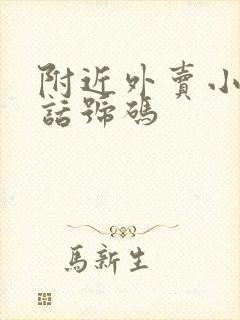 附近外賣小
話號碼
馬新生